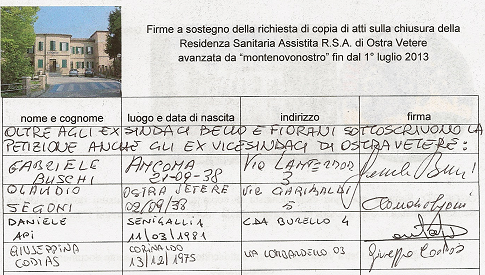 Firme a sostegno della richiesta di copia di atti sulla chiusura della
Residenza Sanitaria Assistita R.S.A. di Ostra Vetere
avanzata da "montenovonostro" fin dal 1° luglio 2013
nome e cognome luogo e data di nascita indirizzo firma
OLTRE AGLI EX SINDACI BELLO E FIORANI SOTTOSCRIVONO LA
PETIZIONE ANCHE GLI EX VICESINDACI DI OSTRA VETERE:
GABRIELE ANCONA VIA
BUSCHI 21-09-38 3
CLAUDIO OSTRA VETERE VIA GARIBALDI
SEGONI 02/09/38 5
DANIELE SENIGALLIA C.DA BURELLO 4
API 11/03/1981
GIUSEPPINA CORINALDO VIA LOMBARDELLO 03
CODIAS 13/12/1975